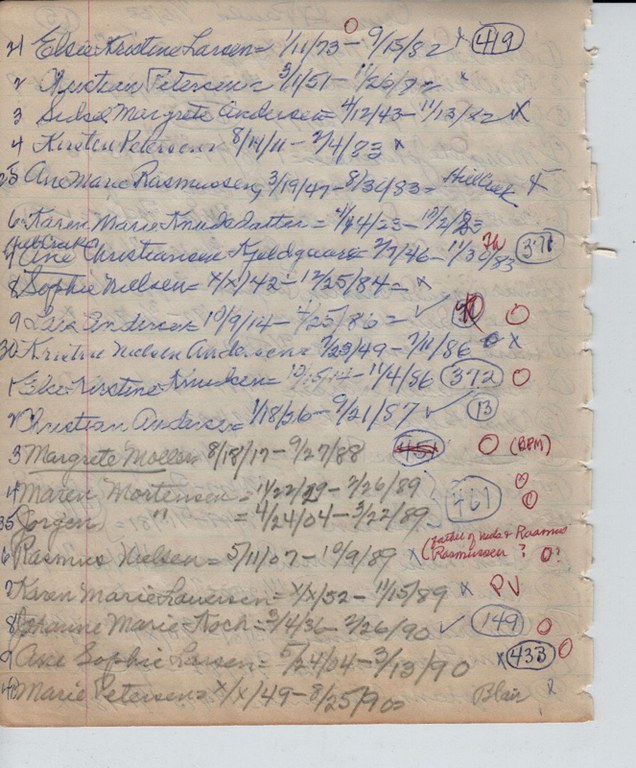 21 Elsie Kristine Larsen = 1/11/73 - 9/15/82 x 419
2 Kristian Petersen = 3/1/51 - 1/26/ x
3 Margrete Andersen = 4/12/43 - 11/13/82 x
4 Kirsten Petersen 8/14/11 - 2/4/83 x
25 Ane Marie Rasmussen, 3/19/47 - 8/3/83 = x
6 Karen Marie Knudsdatter = - 10/2/83
Ane Christiansen Kjeldgaard = 2/7/46 - 11/30/83 371
8 Sophie Nielsen = x/x/42 - 12/25/84 = x
9 Andersen = 10/9/14 - 4/25/86 = ✓ O
30 Kristine Nielsen Andersen = 7/23/49 - 7/11/86 x
1 Kirstine Knudsen = - 11/4/86 372 O
2 Christian Andersen = 1/18/26 - 9/21/87 ✓ 13
3 Margrete Moeller 8/18/17 - 9/27/88 451 O (BPM)
4 Maren Mortensen = - 2/26/89 O
35 Jorgen " = 4/24/04 - 3/22/89 461 O
6 Rasmus Nielsen = 5/11/07 - 10/9/89 x (Father of & Rasmus Rasmussen ? O?
7 Karen Marie Laursen = x/x/52 - 11/15/89 x PV
8 Marie Koch = 3/4/36 - 2/26/90 ✓ 149 O
9 Ane Sophie Larsen = 5/24/04 - 3/13/90 x 433 O
40 Marie Petersen = x/x/49 - 8/25/90 = Blair x